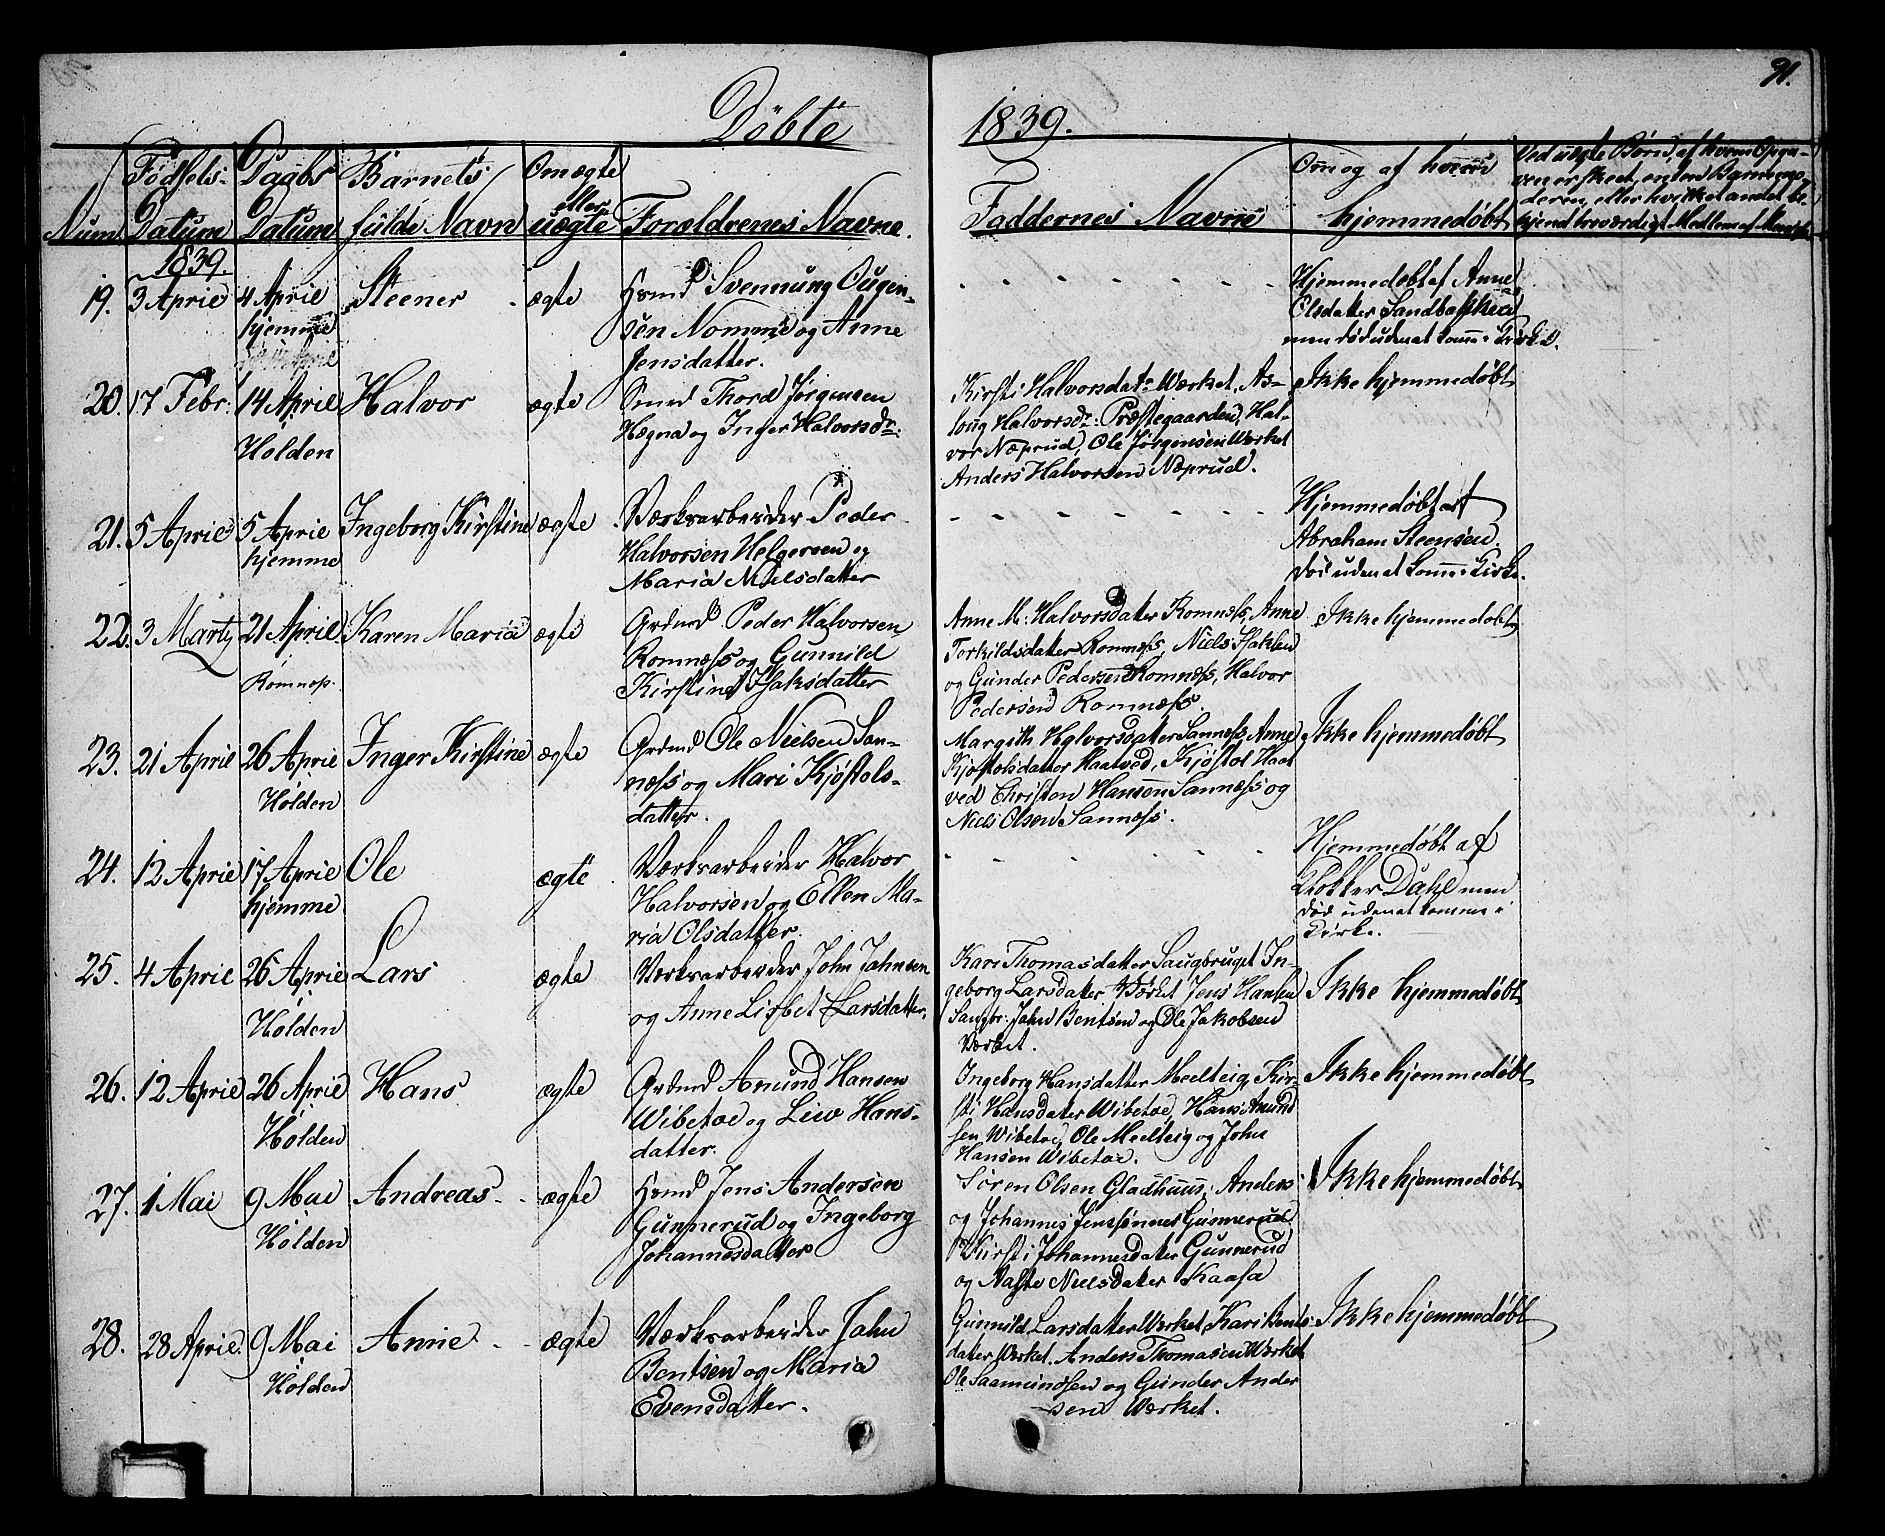 91.
Døbte 1839.
Num
Fødsels-
Datum
Daabs
Datum
Barnets
fulde Navn
Om ægte
eller
uægte
Forældrenes Navne.
Faddernes Navne
Om og af hvem
hjemmedøbt
Ved uægte Børn, af hvem Opgi-
1839.
19. 3 April
4 April
hjemme
Steener
ægte
Hsmd Svennung Ougen-
sen Nomme og Anne
Jensdatter.
- - - - - - -
Hjemmedøbt af Anne
Olsdatter
men død uden at komme i Kirke.
20. 17 Febr:
14 April
Holden
Halvor
ægte
Smed Thord Jørgensen
Hægna og Inger Halvorsdr:
Kirsti Halvorsdatr Værket, As-
loug Halvorsdr: Præstegaarden, Hal-
vor Næprud, Ole Jørgensen Værket
Anders Halvorsen Næprud.
Ikke hjemmedøbt
21. 5 April
5 April
hjemme
Ingeborg Kirstine
ægte
Værksarbeider Peder
Halvorsen Helgersen og
Maria Nielsdatter
- - - - - - -
Hjemmedøbt af
Abraham Steensen.
død uden at komme i Kirke.
22. 3 Marty
21 April
Romnæs.
Karen Maria
ægte
Grdmd Peder Halvorsen
Romnæss og Gunnild
Kirstine Isaksdatter
Anne M: Halvorsdatter Romnæss, Anne
Torkildsdatter Romnæss, Niels Isaksen
og Gunder Pedersen Romnæss, Halvor
Pedersen Romnæss.
Ikke hjemmedøbt
23. 21 April
26 April
Holden
Inger Kirstine
ægte
Grdmd Ole Nielsen San-
næss og Mari Kjøstols-
datter.
Margith Halvorsdatter Sannæss, Anne
Kjøstolsdatter Haatved, Kjøstol Haat
ved Christen Hansen Sannæss og
Niels Olsen Sannæss.
Ikke hjemmedøbt
24. 12 April
17 April
hjemme
Ole
ægte
Værksarbeider Halvor
Halvorsen og Ellen Ma-
ria Olsdatter.
- - - - - -
Hjemmedøbt af
Klokker Dahl men
død uden at komme i
Kirke.
25. 4 April
26 April
Holden
Lars
ægte
Værksarbeider John Johnsen
og Anne Lisbet Larsdatter,
Kari Thomasdatter Saugbruget In-
geborg Larsdatter Værket Jens Hansen
Saugbr: John Bentsen og Ole Jakobsen
Værket.
Ikke hjemmedøbt
26. 12 April
26 April
Holden
Hans
ægte
Grdmd Amund Hansen
Wibetoe og Liv Hans-
datter.
Ingeborg Hansdatter Meelteig, Kir-
sti Hansdatter Wibetoe, Hans Amund
sen Wibetoe, Ole Meelteig og John
Hansen Wibetoe.
Ikke hjemmedøbt
27. 1 Mai
9 Mai
Holden
Andreas
ægte
Hsmd Jens Andersen
Gunnerud og Ingeborg
Johannesdatter
Søren Olsen Gladhuus, Anders
og Johannes Jenssønner Gunnerud
Kirsti Johannesdatter Gunnerud
og Aaste Nielsdatter Kaasa
Ikke hjemmedøbt
28. 28 April.
9 Mai
Holden
Anne
ægte
Værksarbeider John
Bentsen og Maria
Evensdatter.
Gunnild Larsdatter Værket, Kari Bents-
datter Værket. Anders Thomasen Værket
Ole Saamundsen og Gunder Ander
sen Værket.
Ikke hjemmedøbt